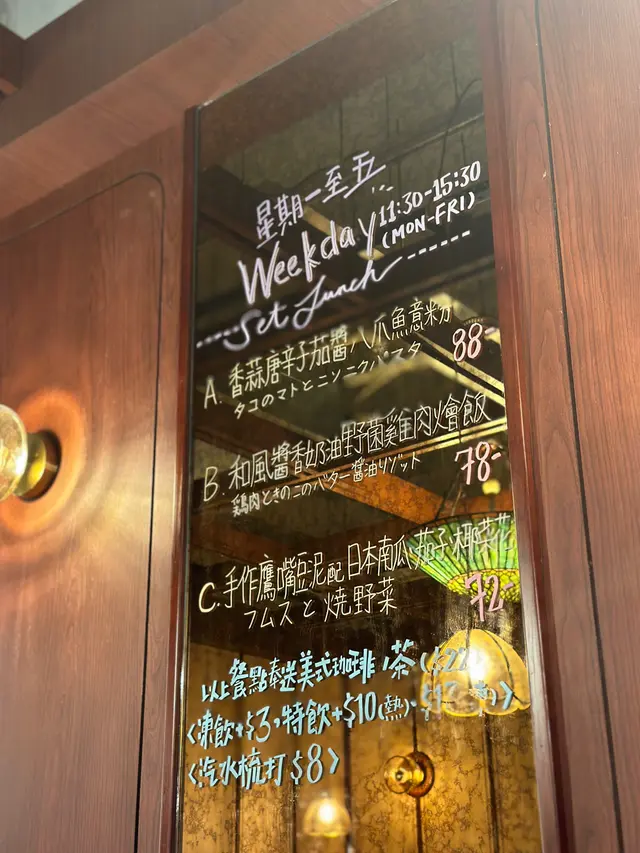 星期一至五
11:30-15:30
Weekday (MON-FRI)
Set Lunch
A. 香蒜唐辛子茄醬八爪魚意粉 88-
タコのマトとニンニクパスタ
B. 和風醬香奶油野菌雞肉燴飯
鶏肉ときのこのバター醤油リゾット 78-
C. 手作鷹嘴豆泥配日本南瓜,茄子,椰菜花
フムスと焼野菜 72
以上餐點奉送美式咖啡/茶
<凍飲+$3,特飲+$10(熱)
<汽水梳打$8>